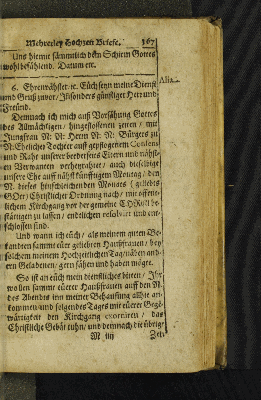 Mehrerley Hochzeit Briefe. 167
Uns hiemit sämmtlich dem Schirm Gottes
wohl befählend. Datum etc.
6. Ehrenvähster. ꝛc. Euch seyn meine Dienst Alia.
und Gruß zuvor/ Insonders günstiger Herr und
Freund.
Demnach ich mich auß Vorsähung Gottes
des Allmächtigen/ hingeflossenen zeiten/ mit
Jungfrau N. N. Herrn N. N. Burgers zu
N. Ehelicher Tochter auß gepflogenem Consens
und Raht unserer beederseits Eltern und nähst-
en Verwanten verheyrahtet/ auch dieselbige
unsere Ehe auff nähst künfftigem Montag/ den
N. dieses hinschleichenden Monats (geliebts
GOtt/) Christlicher Ordnung nach/ mit öffent-
lichem Kirchgang vor der gemeine CHristi be-
stättigen zu lassen/ endtlichen resolvirt und ent-
schlossen sind.
Und wann ich euch/ als meinem guten Be-
kandten sammt euer geliebten Haußfrauen/ bey
solchem meinem Hochzeitlichen Tag/ näben and-
ern Geladenen/ gern sähen und haben möge.
So ist an euch mein dienstliches bitten/ Ihr
wollen sammt euerer Haußfrauen auff den N.
des Abends inn meiner Behausung allhie an-
kommen und folgendes Tages mit euerer Gege-
wärtigkeit den Kirchgang exorniren/ das
Christliche Gebät tuhn/ und demnach die übrige
M iiij Zeit